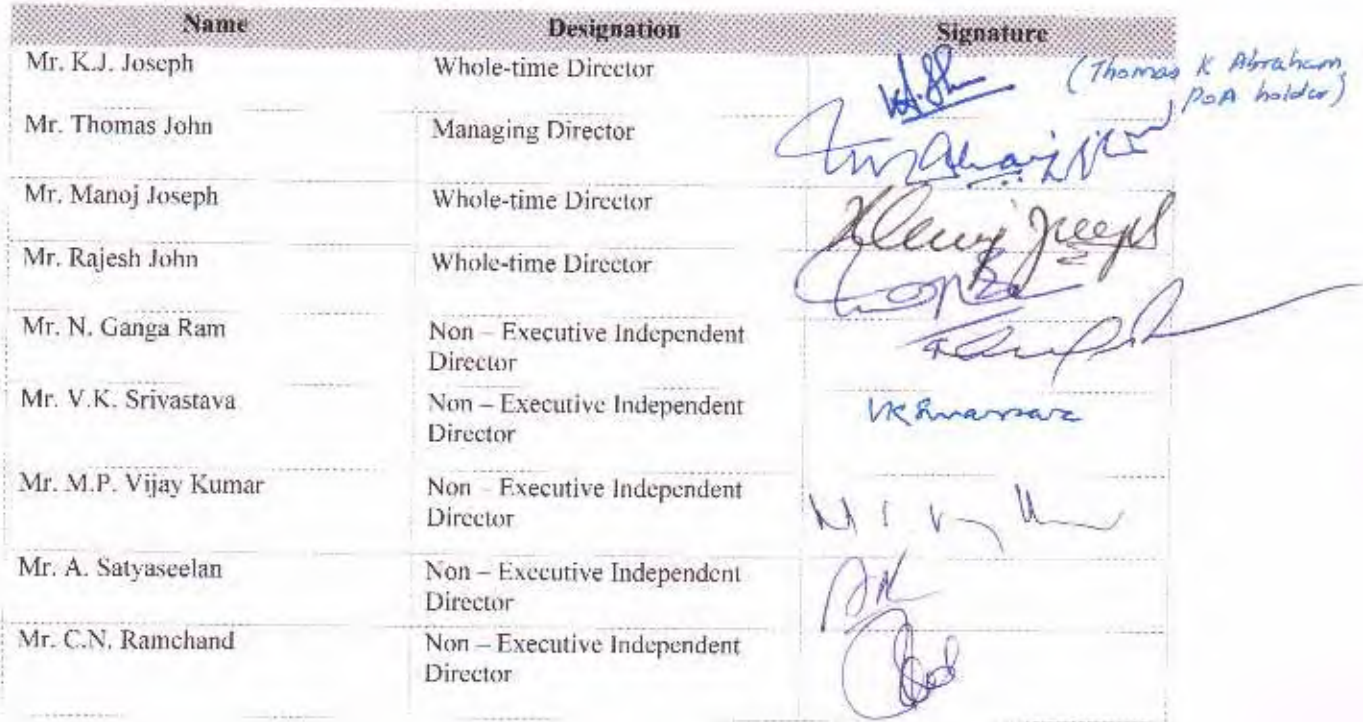 Name Designation Signature
Mr. K.J. Joseph Whole-time Director (Thomas K Abraham,
PoA holder)
Mr. Thomas John Managing Director
Mr. Manoj Joseph Whole-time Director
Mr. Rajesh John Whole-time Director
Mr. N. Ganga Ram Non – Executive Independent
Director
Mr. V.K. Srivastava Non – Executive Independent
Director
Mr. M.P. Vijay Kumar Non – Executive Independent
Director
Mr. A. Satyaseelan Non – Executive Independent
Director
Mr. C.N. Ramchand Non – Executive Independent
Director